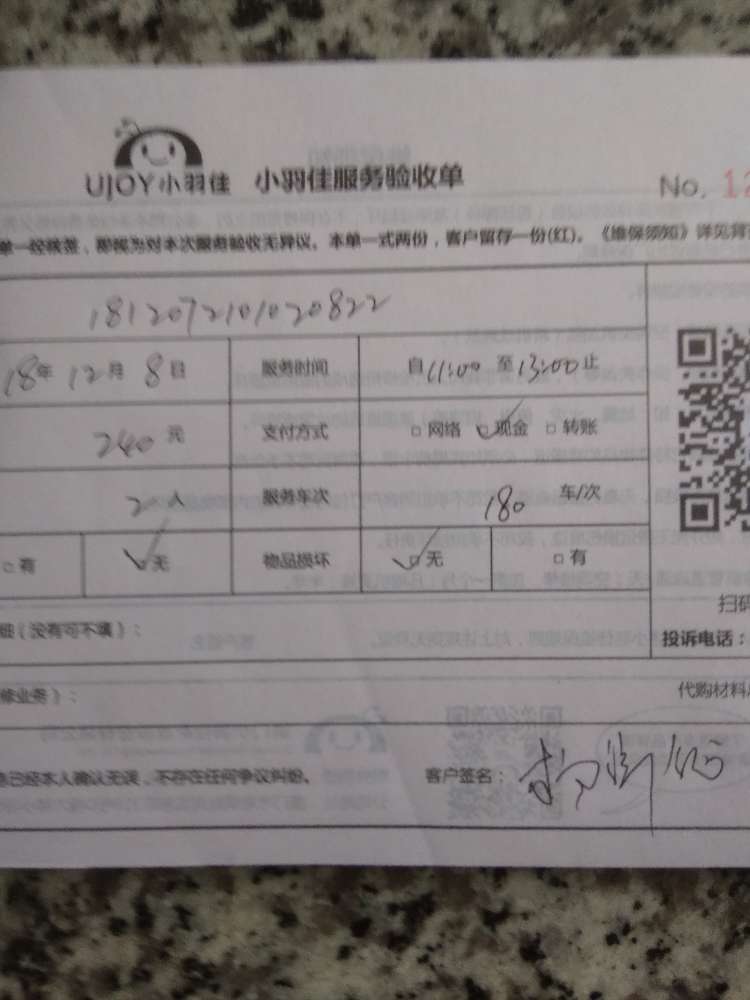 UJOY小羽佳 小羽佳服务验收单 No. 12
单一经核签，即视为对本次服务验收无异议。本单一式两份，客户留存一份(红)。《维保须知》详见背
1812072101020822
18年 12月 8日 服务时间 自11:00 至13:00止
240元 支付方式 □ 网络 □ 现金 □ 转账
2人 服务车次 180 车/次
□ 有 □ 无 物品损坏 □ 无 □ 有
扫码
细（没有可不填）： 投诉电话：
修业务）： 代购材料
息已经本人确认无误，不存在任何争议纠纷。 客户签名：